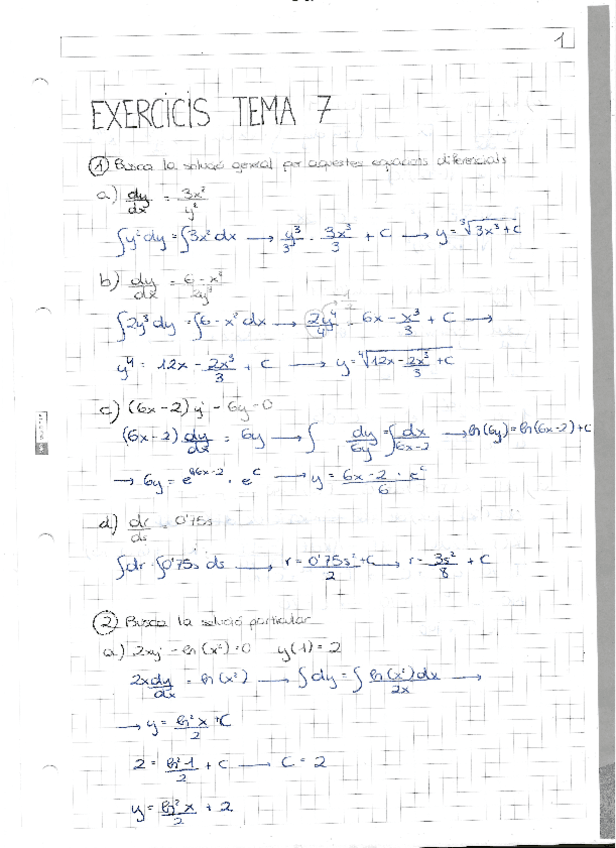 1
EXERCICIS TEMA 7
① Busca la solució general per aquestes equacions diferencials
a) dy/dx = 3x²/y²
∫y²dy = ∫3x²dx → y³/3 = 3x³/3 + C → y = ∛(3x³+C)
b) dy/dx = 6-x²/2y³
∫2y³dy = ∫6-x²dx → 2y⁴/4 = 6x - x³/3 + C →
y⁴ = 12x - 2x³/3 + C → y = ⁴√(12x - 2x³/3 + C)
c) (6x-2)y' - 6y = 0
(6x-2) dy/dx = 6y → ∫ dy/6y = ∫ dx/6x-2 → ln(6y) = ln(6x-2) + C
→ 6y = e^(6x-2) · e^C → y = 6x-2 · e^C/6
d) dr/ds = 0'75s
∫dr = ∫0'75s ds → r = 0'75s²/2 + C → r = 3s²/8 + C
② Busca la solució particular
a) 2xy' - ln(x²) = 0 y(1) = 2
2x dy/dx = ln(x²) → ∫dy = ∫ ln(x²)dx/2x →
→ y = ln²x/2 + C
2 = ln²1/2 + C → C = 2
y = ln²x/2 + 2